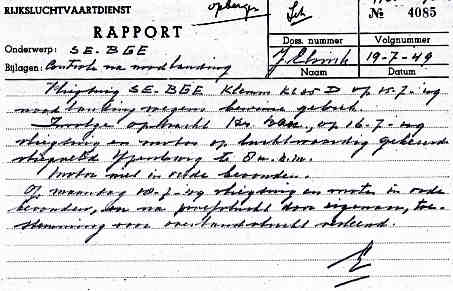 RIJKSLUCHTVAARTDIENST
opbergen
№ 4085
RAPPORT
Onderwerp: SE-BGE
Doss. nummer Volgnummer
Bijlagen: Controle na noodlanding
19-7-49
Naam Datum
Vliegtuig SE-BGE Klemm Kl 35 D op 15-7-49
noodlanding wegens benzine gebrek.
opdracht op 16-7-49
vliegtuig en motor op luchtwaardig gekeurd
vliegveld Ypenburg te
Motor niet in orde bevonden.
Op maandag 18-7-49 vliegtuig en motor in orde
bevonden, en na proefvlucht door eigenaar, toe-
stemming voor overlandvlucht verleend.